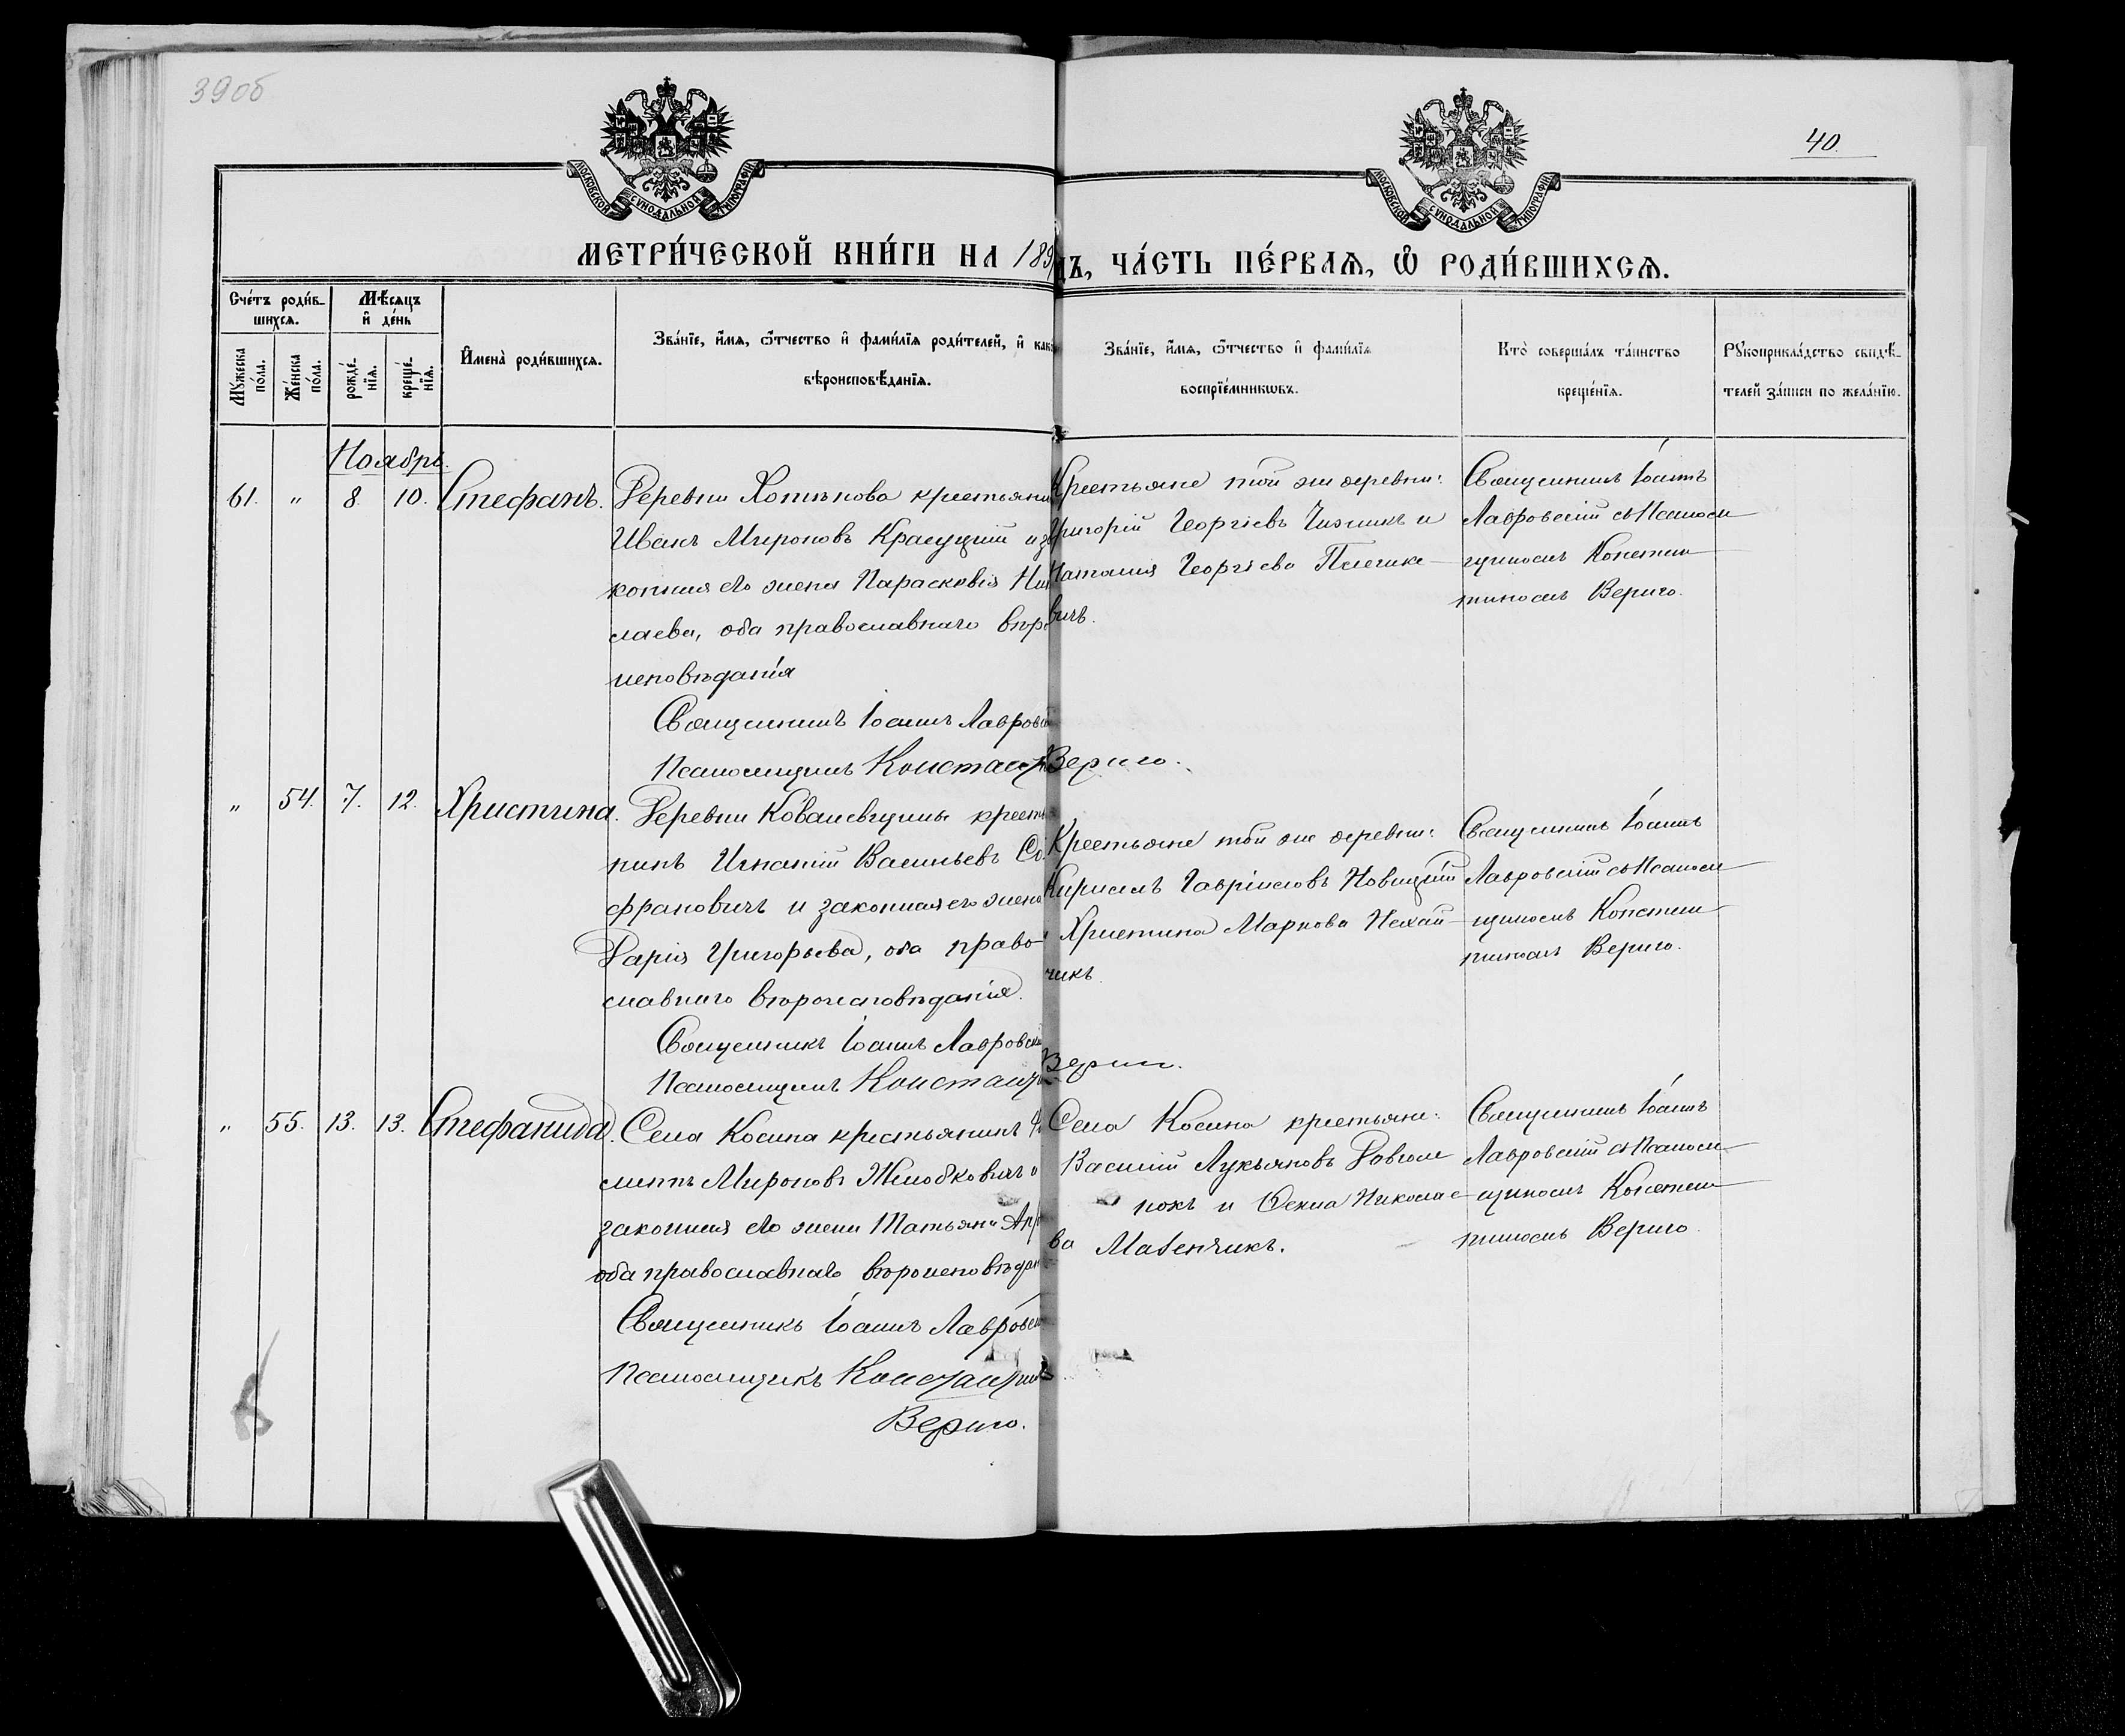 39об
40.
МОСКОВСКОЙ СѴНОДАЛЬНОЙ ТИПОГРАФІИ
МОСКОВСКОЙ СѴНОДАЛЬНОЙ ТИПОГРАФІИ
МЕТРИ́ЧЕСКОЙ КНИ́ГИ НА 189
ДЪ, ЧА́СТЬ ПЕ́РВАѦ, Ѡ҆ РОДИ́ВШИХСѦ.
Сче́тъ роди́в-
шихсѧ.
Мѣ́сѧцъ
и҆ де́нь
Мꙋ́жеска
по́ла.
Же́нска
по́ла.
рожде́-
нїѧ.
креще́-
нїѧ.
И҆мена̀ роди́вшихсѧ.
Зва́нїе, и҆́мѧ, ѻ҆́тчество и҆ фами́лїѧ роди́телей, и҆ как
вѣроисповѣ́данїѧ.
Зва́нїе, и҆́мѧ, ѻ҆́тчество и҆ фами́лїѧ
воспрїе́мникѡвъ.
Кто̀ соверша́лъ та́инство
креще́нїѧ.
Рꙋкоприкла́дство свидѣ́-
телей за́писи по жела́нїю.
Ноябрь.
61. " 8. 10. Стефанъ.
Деревни Хотынова крестьяни
Иванъ Мироновъ Красуцкій и за
конная его жена Параскевія Ни
слаева, оба православнаго вѣро
исповѣданія
Священникъ Іоаннъ Лавровск
Псаломщикъ Констант
Крестьяне той же деревни:
Григорій Георгіевъ Чижикъ и
Наталія Георгіева
вичъ.
Вериго.
Священникъ Іоаннъ
Лавровскій съ Псалом
щикомъ Констан
тиномъ Вериго.
" 54. 7. 12. Христина.
Деревни крестья
нинъ Игнатій Васильевъ
франовичъ и законная его жена
Дарія Григорьева, оба право-
славнаго вѣроисповѣданія.
Священникъ Іоаннъ Лавровскі
Псаломщикъ Констант
Крестьяне той же деревни:
Кириллъ Гавріиловъ Новицкій
Христина Маркова Нехай-
чикъ.
Вериго.
Священникъ Іоаннъ
Лавровскій съ Псалом
щикомъ Констан
тиномъ Вериго.
" 55. 13. 13. Стефанида.
Села Косина крестьянинъ
Мироновъ Жлобковичъ и
законная его жена Татьяна
оба православнаго вѣроисповѣдан
Священникъ Іоаннъ Лавровск
Псаломщикъ Константинъ
Вериго.
Села Косина крестьяне:
Василій Лукьяновъ
и Николае-
ва Матенчикъ.
Священникъ Іоаннъ
Лавровскій съ Псалом
щикомъ Констан
тиномъ Вериго.